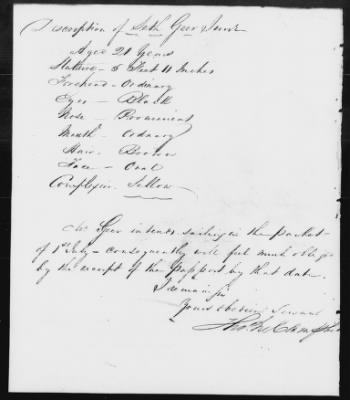 Discription of Seth Geer Junr
Age 21 Years
Stature - 5 Feet 11 Inches
Forehead - Ordinary
Eyes - Black
Nose - Prominent
Mouth Ordinary
Hair - Brown
Face - Oval
Complexion - Sallow
Mr Geer intends sailing in the packet
of 1st July - consequently will feel much oblige
by the receipt of the passport by that date.
I remain Sir
Yours Obedient Servant